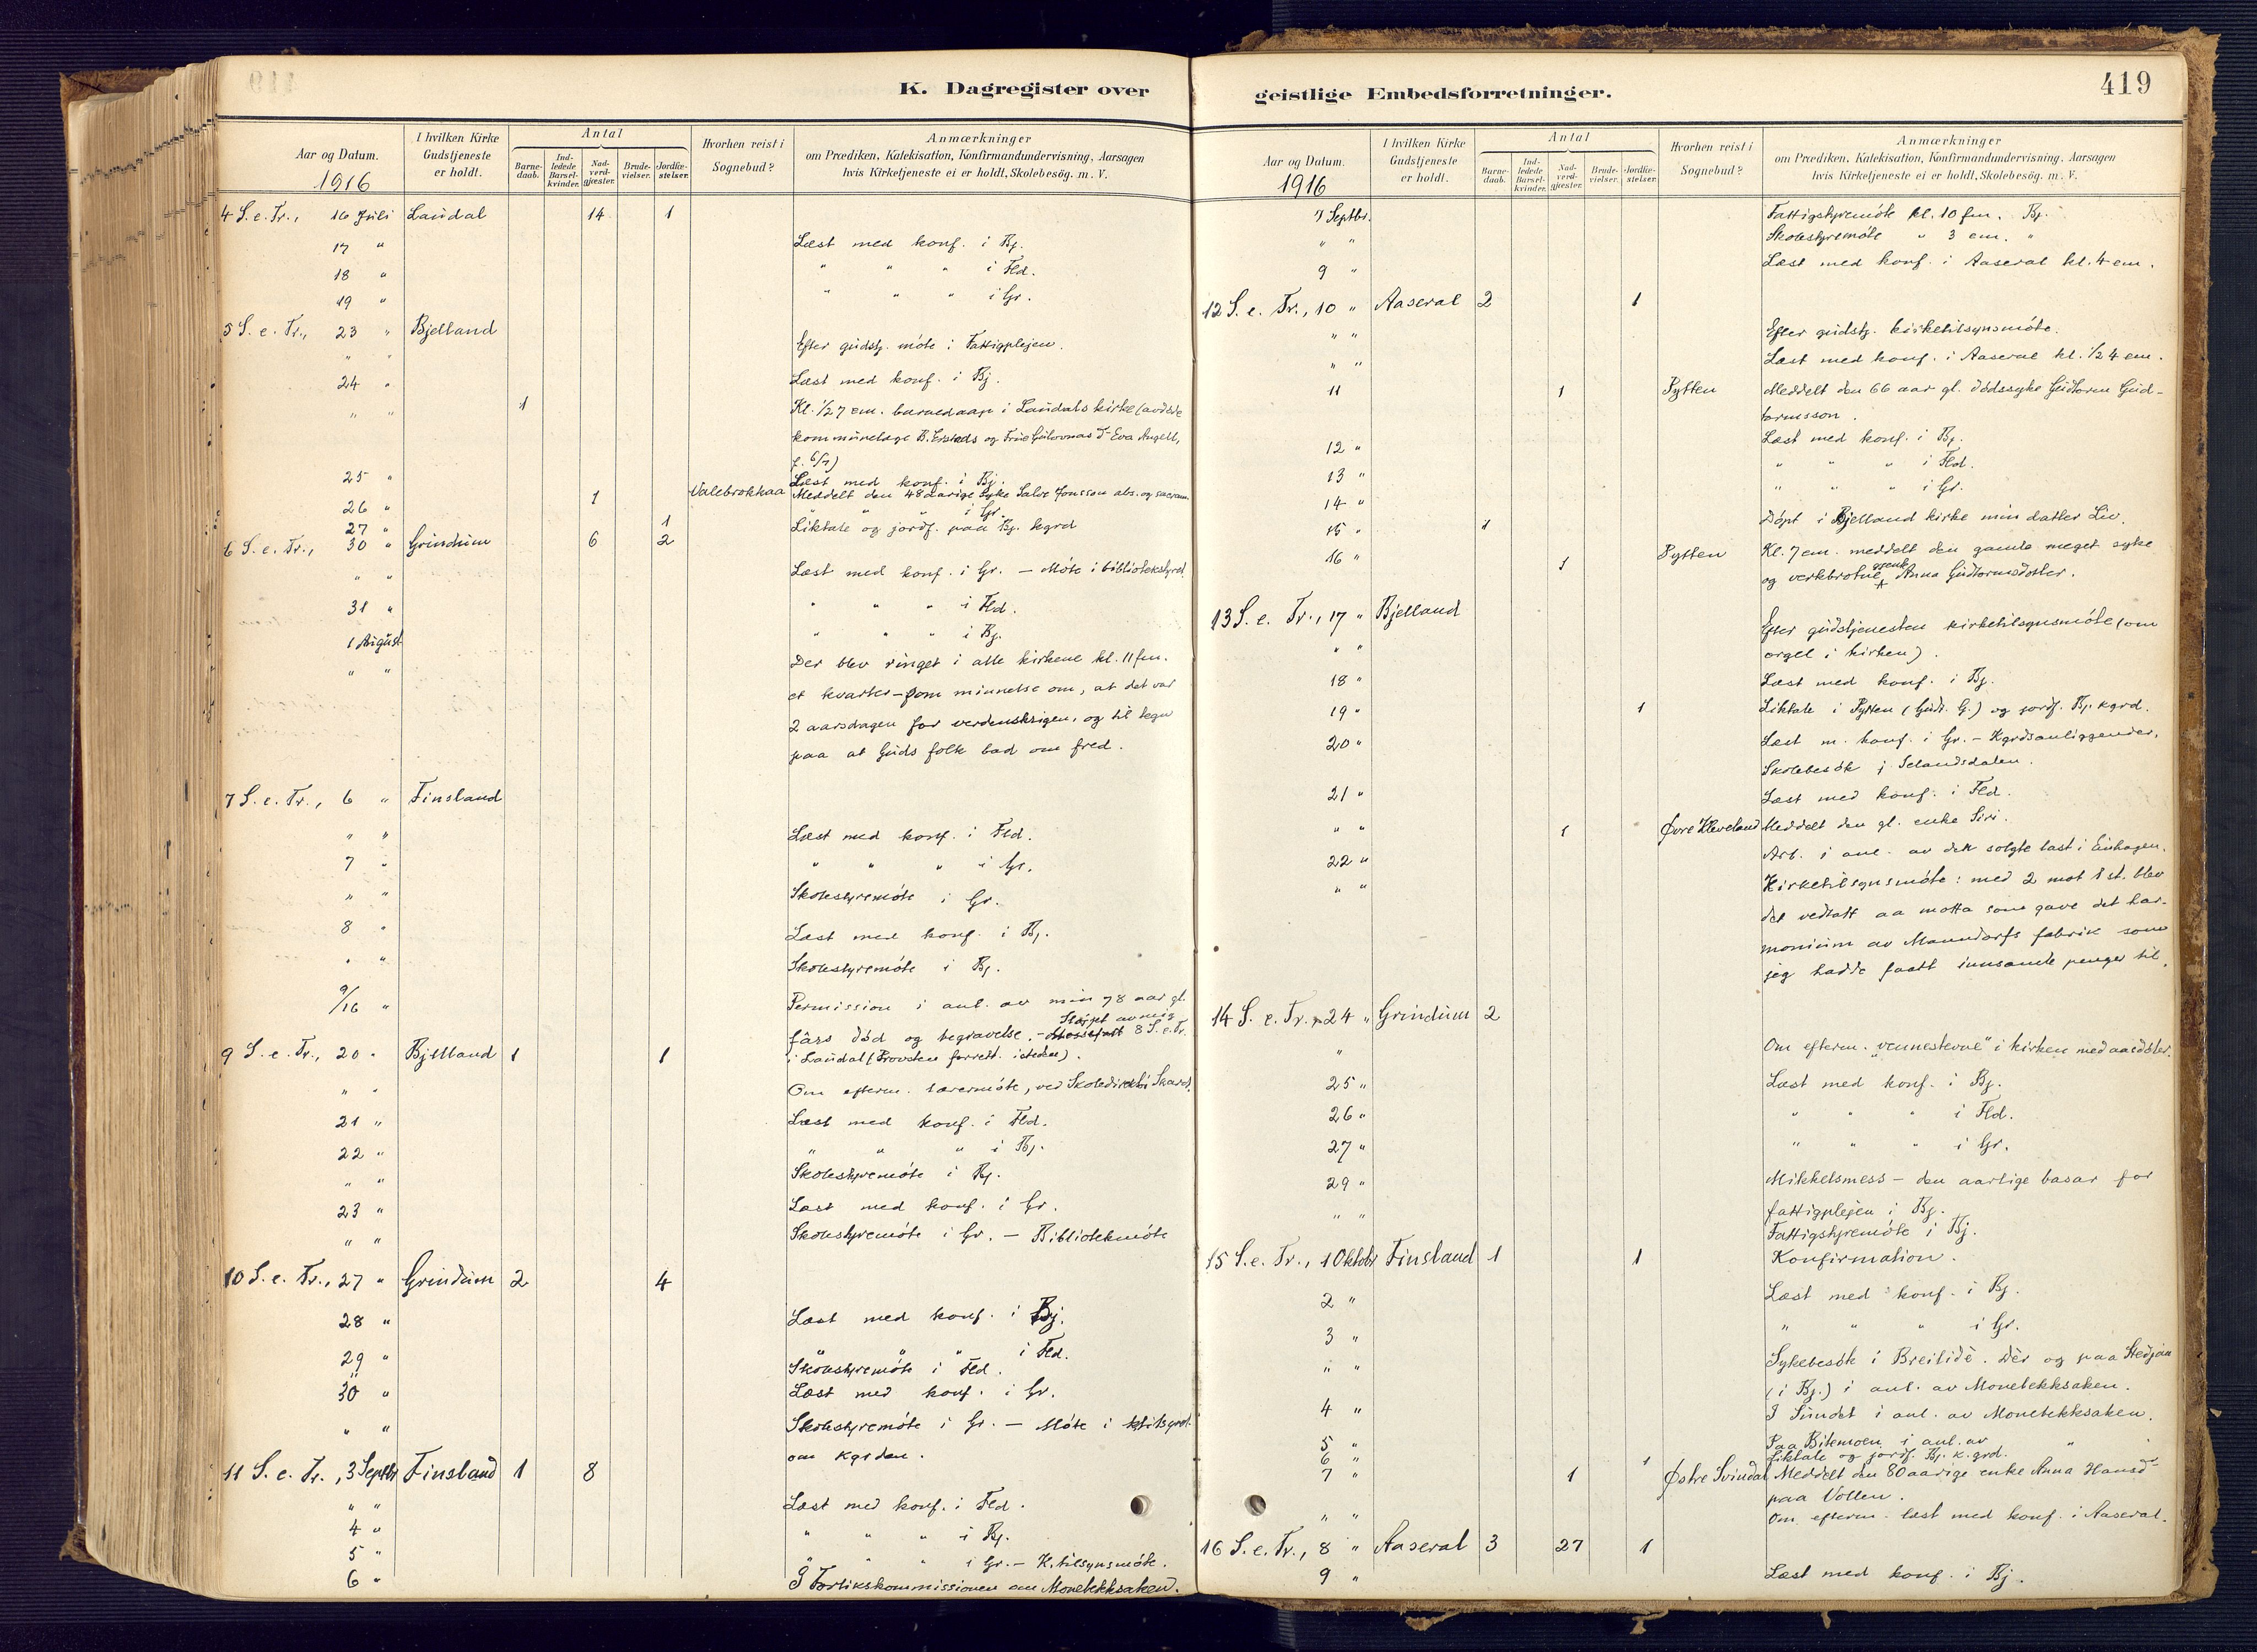 419
K. Dagregister over
Aar og Datum.
1916
I hvilken Kirke Gudstjeneste er holdt.
Antal
Barnedaab.
Indledede Barselkvinder.
Nadverdgjæster.
Brudevielser.
Jordfæstelser.
Hvorhen reist i Sognebud?
Anmærkninger
om Prædiken, Katekisation, Konfirmandundervisning, Aarsagen
hvis Kirketjeneste ei er holdt, Skolebesög. m. V.
4 S. e. Tr., 16 Juli Laudal 14 1
17 " Læst med konf. i Bj.
18 " " " " i Fld.
19 " " " " i Gr.
5 S. e. Tr., 23 " Bjelland
" " Efter gudstj. møte i Fattigplejen.
24 " Læst med konf. i Bj.
" " 1 Kl. 1/2 7 em. barnedaap i Laudals kirke (avdøde
kommunelæge B. og Frue Eva Angell,
f. 6/7)
25 " Læst med konf. i Bj.
26 " 1 Valebrokkaa Meddelt den 48 aarige syke Salve Jonsson abs. og sacram.
" " " i Gr.
27 " 1 Liktale og jordf. paa Bj. kgrd
6 S. e. Tr., 30 " Grindum 6 2
" " Læst med konf. i Gr. – Møte i bibliotekstyret
31 " " " " i Fld.
1 August " " " i Bj.
" " Der blev ringet i alle kirkene kl. 11 fm.
et kvarter – som minnelse om, at det var
2 aarsdagen for verdenskrigen, og til tegn
paa at Guds folk bad om fred.
7 S. e. Tr., 6 " Finsland
" " Læst med konf. i Fld.
7 " " " " i Gr.
" " Skolestyremøte i Gr.
8 " Læst med konf. i Bj.
" " Skolestyremøte i Bj.
9/16 " Permission i anl. av min 78 aar gl.
fars død og begravelse. – 8 S. e. Tr.
i Laudal (Provsten forrett. isteden).
9 S. e. Tr., 20 " Bjelland 1 1
" " Om efterm. lærermøte, ved Skoledirektør Skard.
21 " Læst med konf. i Fld.
22 " " " " i Bj.
" " Skolestyremøte i Bj.
23 " Læst med konf. i Gr.
" " Skolestyremøte i Gr. – Bibliotekmøte
10 S. e. Tr., 27 " Grindum 2 4
28 " Læst med konf. i Bj.
29 " " " " i Fld.
" Skolestyremøte i Fld.
30 " Læst med konf. i Gr.
" " Skolestyremøte i Gr. – Møte i
om kgrden.
11 S. e. Tr., 3 Septbr Finsland 1 8
" " Læst med konf. i Fld.
4 " " " " i Bj.
5 " " " " i Gr. – K. tilsynsmøte.
6 " I Forlikskommissionen om Monebekksaken.
geistlige Embedsforretninger.
419
Aar og Datum.
1916
I hvilken Kirke Gudstjeneste er holdt.
Antal
Barnedaab.
Indledede Barselkvinder.
Nadverdgjæster.
Brudevielser.
Jordfæstelser.
Hvorhen reist i Sognebud?
Anmærkninger
om Prædiken, Katekisation, Konfirmandundervisning, Aarsagen
hvis Kirketjeneste ei er holdt, Skolebesög. m. V.
7 Septbr. Fattigstyremøte kl. 10 fm. Bj.
" " Skolestyremøte " 3 em. "
9 " Læst med konf. i Aaseral kl. 4 em.
12 S. e. Tr., 10 " Aaseral 2 1
" " Efter gudstj. kirketilsynsmøte.
" " Læst med konf. i Aaseral kl. 1/2 4 em.
11 1 Pytten Meddelt den 66 aar gl. dødssyke Gudtorm Gud-
tormsson.
12 " Læst med konf. i Bj.
13 " " " " i Fld.
14 " " " " i Gr.
15 " 1 Døpt i Bjelland kirke min datter Liv.
16 " 1 Pytten Kl. 7 em. meddelt den gamle meget syke
og verkbrotne Anna Gudtormsdotter.
13 S. e. Tr., 17 " Bjelland
" " Efter gudstjenesten kirketilsynsmøte (om
orgel i kirken).
18 " Læst med konf. i Bj.
19 " 1 Liktale i Pytten (Gudt. G.) og jordf. Bj. kgrd.
20 " Læst m. konf. i Gr. – Kgrdsanliggender.
Skolebesøk i Selandsdalen.
21 " Læst med konf. i Fld.
" " 1 Øvre Kleveland Meddelt den gl. enke Siri.
22 " Arb. i anl. av den solgte last i Einhagen.
" " Kirketilsynsmøte: med 2 mot 1 st. blev
det vedtatt aa motta som gave det har-
monium av Manndorfs fabrik som
jeg hadde faatt innsamle penger til.
14 S. e. Tr. 24 " Grindum 2
" Om efterm. "vennestevne" i kirken med aasdøler.
25 " Læst med konf. i Bj.
26 " " " " i Fld.
27 " " " " i Gr.
29 " Mikkelsmess – den aarlige basar for
fattigplejen i Bj.
" " Fattigstyremøte i Bj.
15 S. e. Tr., 1 Oktobr Finsland 1 1 Konfirmation.
2 " Læst med konf. i Bj.
3 " " " " i Gr.
" " Sykebesøk i Breilidè. Dèr og paa
(i Bj.) i anl. av Monebekksaken.
4 " I Sundet i anl. av Monebekksaken.
5 " Paa Bitemoen i anl. av " "
6 " 1 Liktale og jordf. Bj. k.grd.
7 " 1 Østre Svindal Meddelt den 80 aarige enke Anna Hansd.
paa Vollen.
" " Om efterm. læst med konf. i Aaseral.
16 S. e. Tr., 8 " Aaseral 3 27 1
9 " Læst med konf. i Bj.